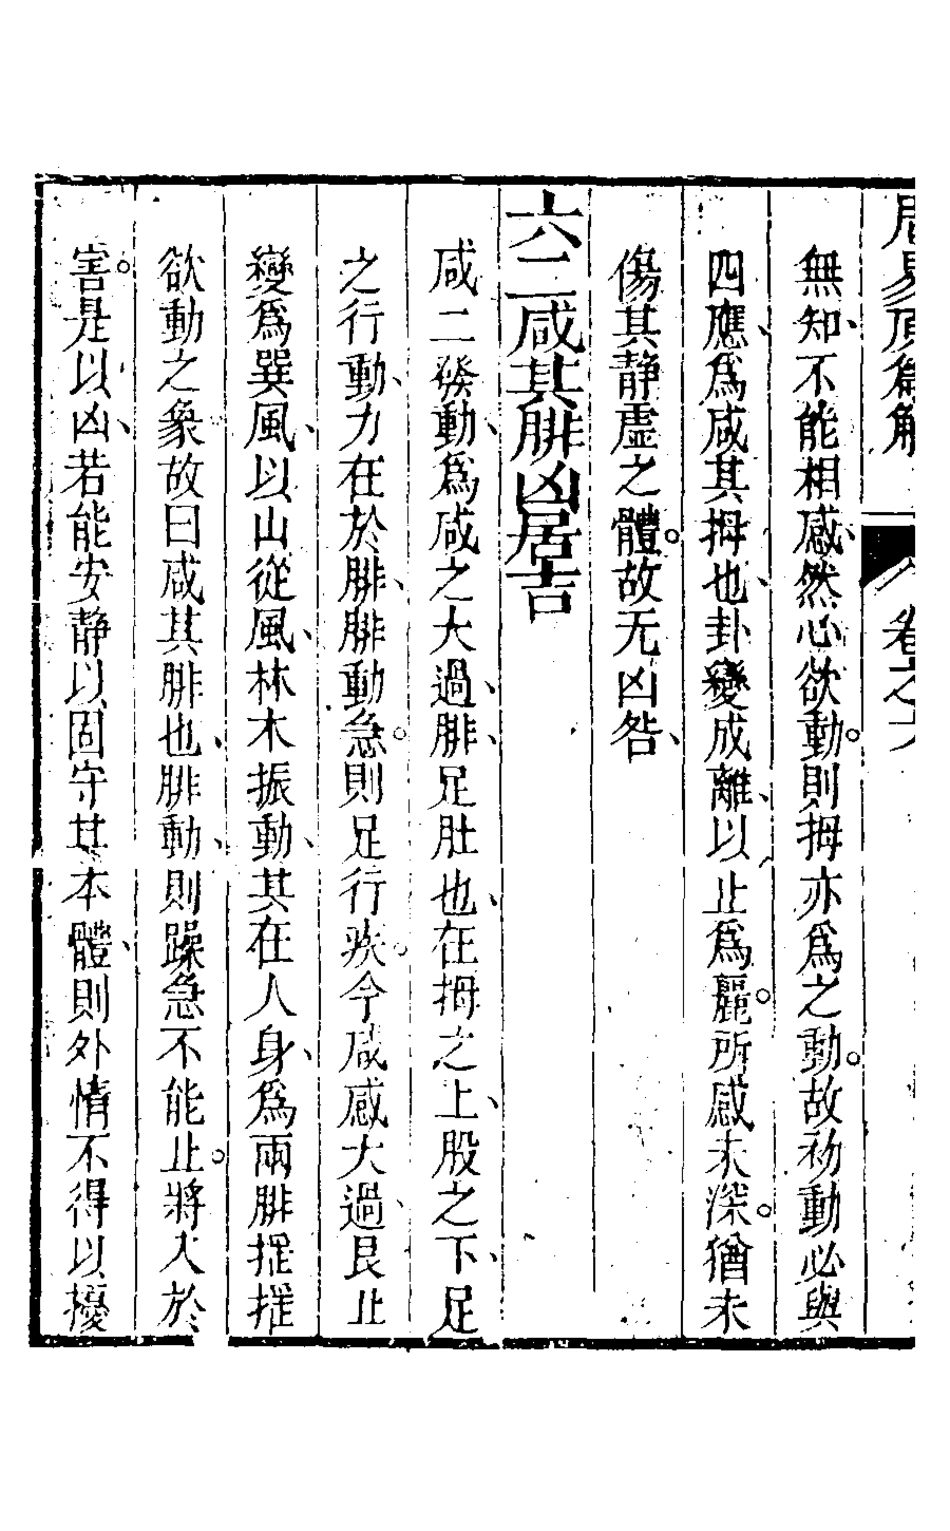 周易頂篇解 卷之六
無知、不能相感、然心欲動。則拇亦爲之動。故初動必與
四應、爲咸其拇也、卦變成離、以止爲麗。所感未深。猶未
傷其靜虛之體。故无凶咎、
六二咸其腓凶居吉
咸二發動、爲咸之大過、腓、足肚也、在拇之上、股之下、足
之行動、力在於腓、腓動急。則足行疾。今咸感大過、艮止
變爲巽風、以山從風、林木振動、其在人身、爲兩腓搖搖
欲動之象。故曰咸其腓也、腓動、則躁急不能止。將大於
害。是以凶、若能安靜以固守其本體、則外情不得以擾